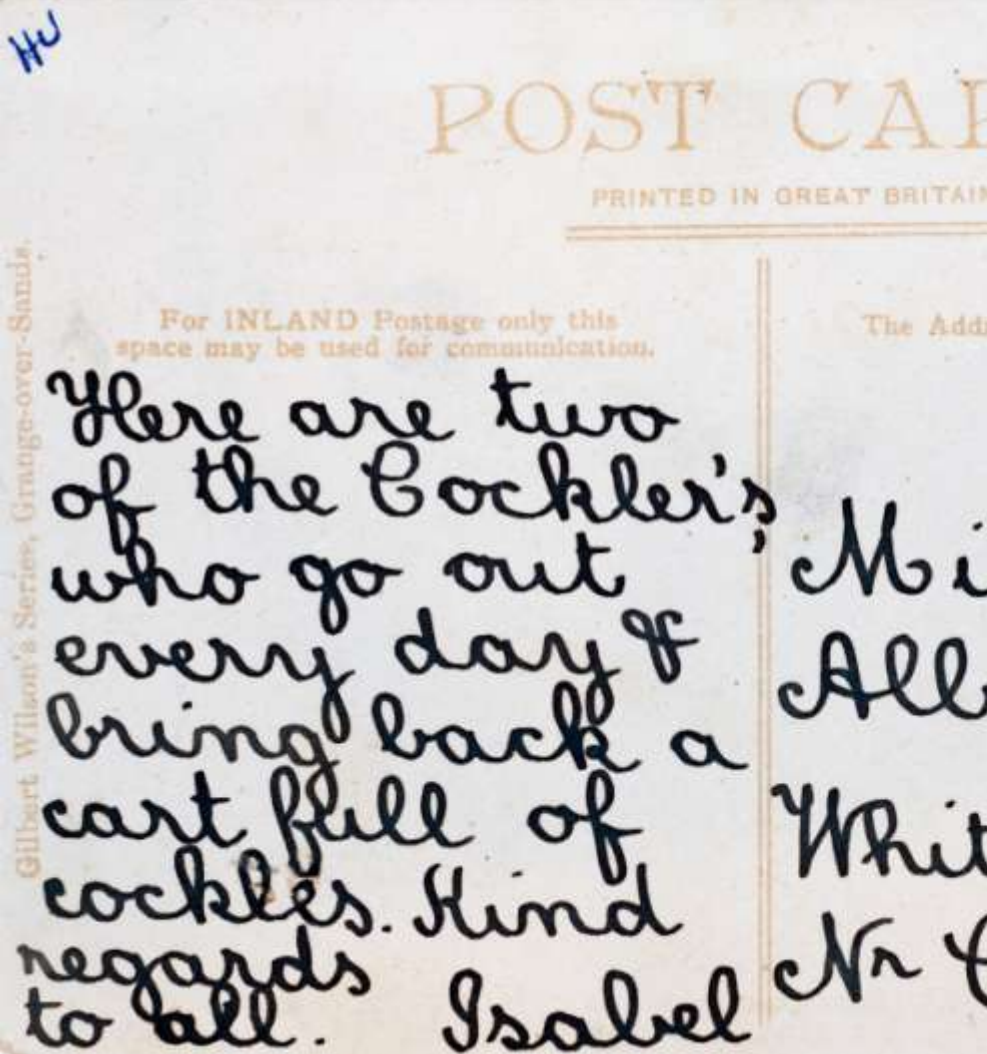 HU
POST CAR
PRINTED IN GREAT BRITAIN
Gilbert Wilson's Series, Grange-over-Sands.
For INLAND Postage only this
space may be used for communication.
The Addr
Here are two
of the Cockler's,
who go out
every day &
bring back a
cart full of
cockles. Kind
regards
to all. Isabel
Mi
All
Whit
Nr